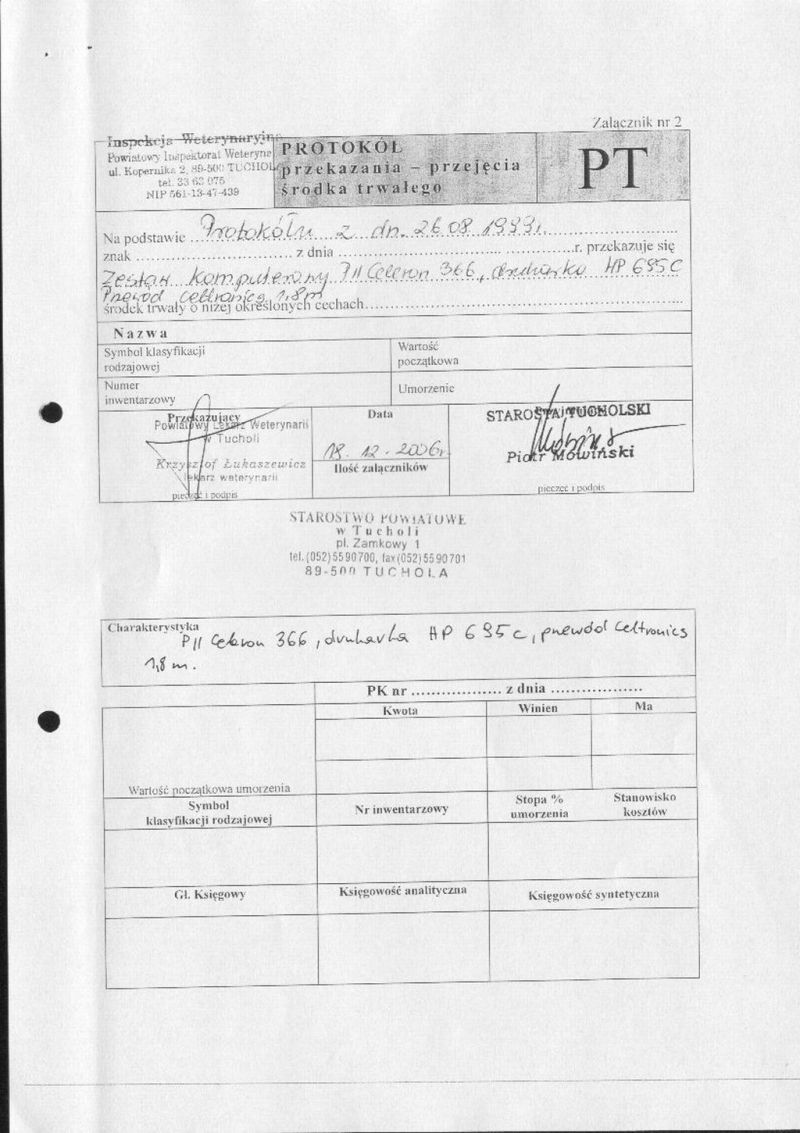 Załącznik nr 2
Inspekcja Weterynaryjna
Powiatowy Inspektorat Weteryna
ul. Kopernika 2, 89-500 TUCHOL
tel. 33 63 075
NIP 561-13-47-439
PROTOKÓŁ
przekazania – przejęcia
środka trwałego
PT
Na podstawie Protokółu z dn. 26.08.1999r.
znak .......................... z dnia ..........................................r. przekazuje się
Zestaw komputerowy PII Celeron 366, drukarka HP 695C
Przewód Celtronics 1,8m
środek trwały o niżej określonych cechach
Nazwa
Symbol klasyfikacji
rodzajowej
Wartość
początkowa
Numer
inwentarzowy
Umorzenie
Przekazujący
Powiatowy Lekarz Weterynarii
w Tucholi
Krzysztof Łukaszewicz
lekarz weterynarii
pieczęć i podpis
Data
18. 12. 2006r
Ilość załączników
STAROSTA TUCHOLSKI
Piotr Mówiński
pieczęć i podpis
STAROSTWO POWIATOWE
w Tucholi
pl. Zamkowy 1
tel. (052)5590700, fax (052)5590701
89-500 TUCHOLA
Charakterystyka
PII Celeron 366, drukarka HP 695c, przewód Celtronics
1,8 m.
PK nr .................. z dnia ..................
Kwota
Winien
Ma
Wartość początkowa umorzenia
Symbol
klasyfikacji rodzajowej
Nr inwentarzowy
Stopa %
umorzenia
Stanowisko
kosztów
Gł. Księgowy
Księgowość analityczna
Księgowość syntetyczna